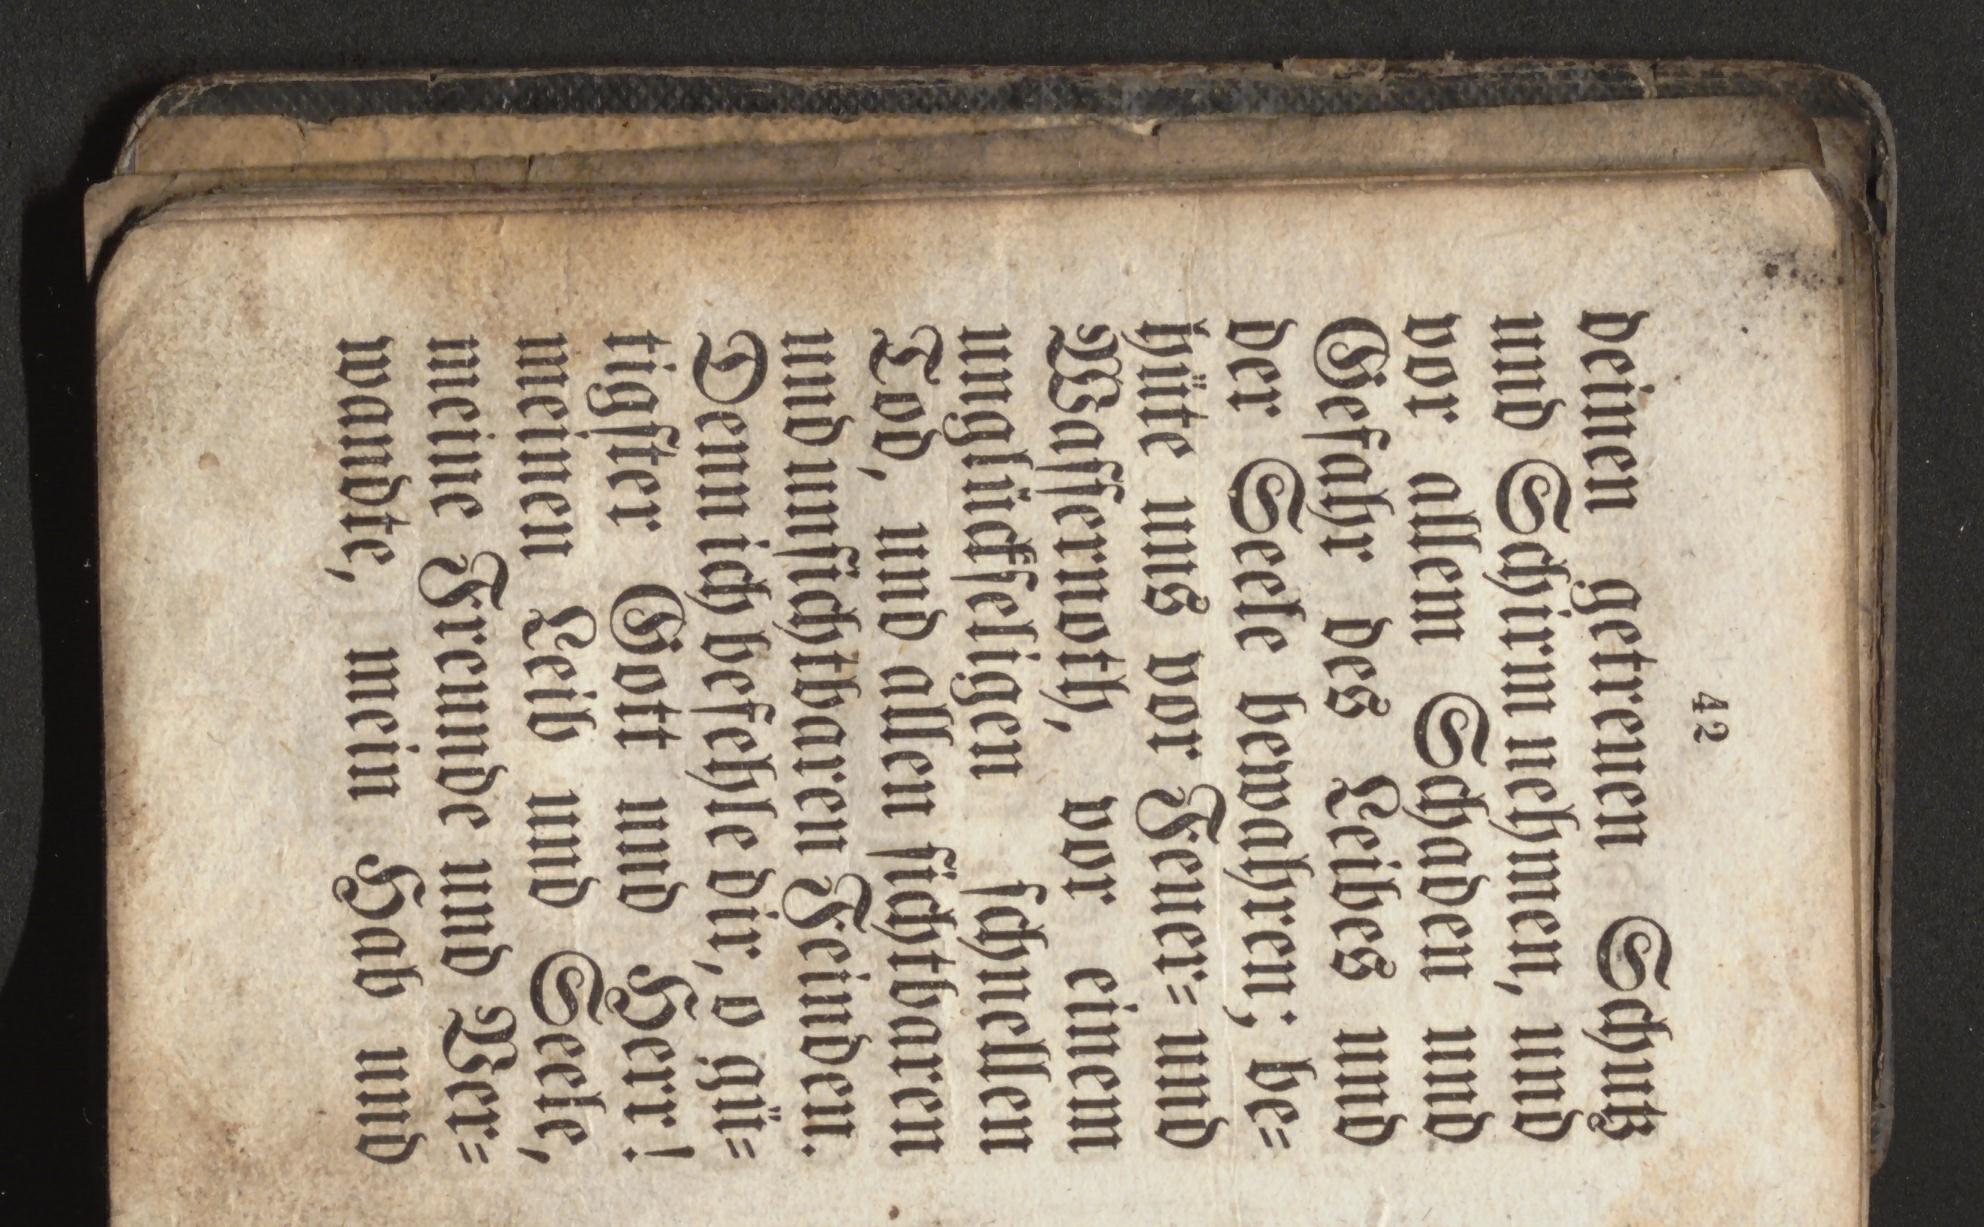 42
deinen getreuen Schutz
und Schirm nehmen, und
vor allem Schaden und
Gefahr des Leibes und
der Seele bewahren; be=
hüte uns vor Feuer= und
Wassernoth, vor einem
unglückseligen schnellen
Tod, und allen sichtbaren
und unsichtbaren Feinden.
Demnich befehle dir, o gü=
tigster Gott und Herr!
meinen Leib und Seele,
meine Freunde und Ver=
wandte, mein Hab und